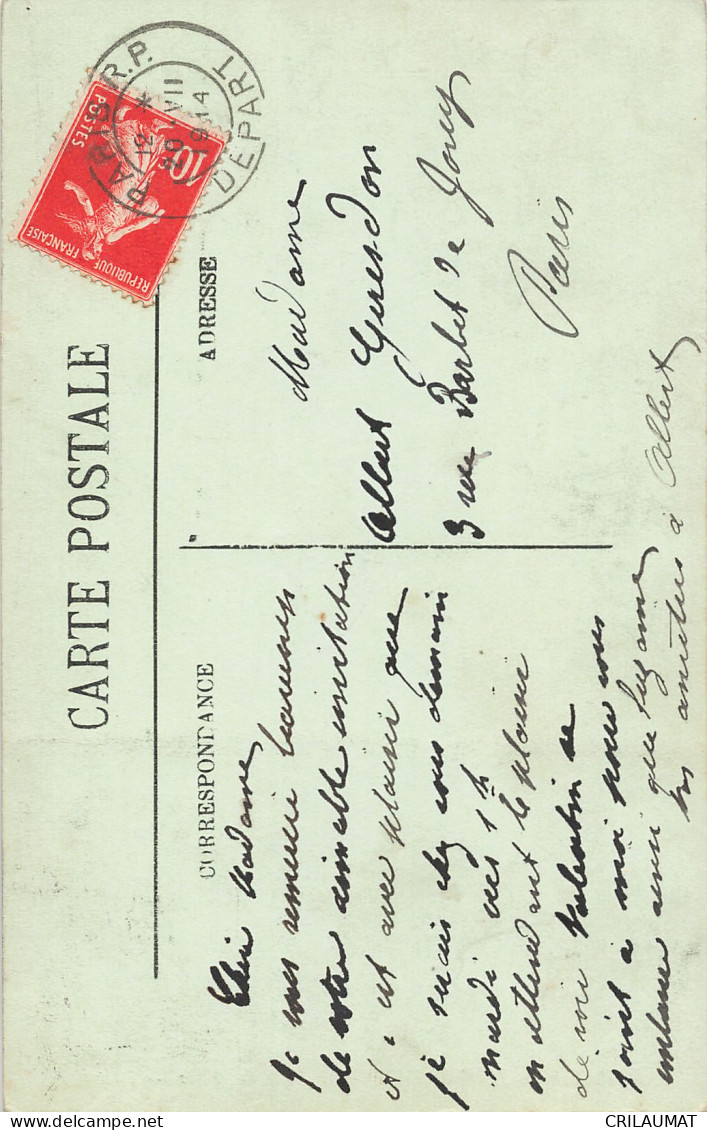 CARTE POSTALE
CORRESPONDANCE
ADRESSE
PARIS R.P.
DÉPART
12 *
20 VII
1914
10c
POSTES
REPUBLIQUE FRANÇAISE
Chère Madame
Je vous remercie beaucoup
de votre aimable invitation
et c'est avec plaisir que
je serais chez vous demain
mardi vers 1h
en attendant le plaisir
de voir Valentin se
joint à moi pour vous
embrasser ainsi que Suzanne
mes amitiés à Albert
Madame
Albert Guesdon
3 rue Barbet de Jouy
Paris
CRILAUMAT